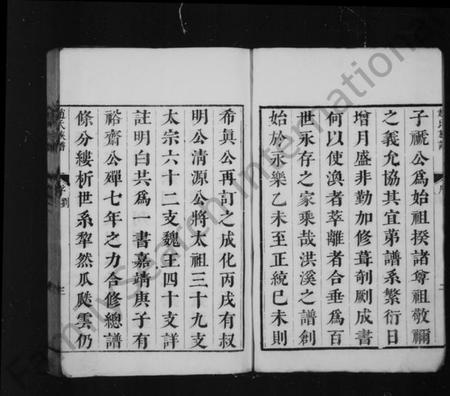 子禠公為始祖揆諸尊祖敬禰
之義允協其宜第譜系繁衍日
增月盛非勤加修葺剞劂成書
何以使渙者萃離者合垂為百
世永存之家乘哉洪溪之譜創
始於永樂乙未至正統己未則
希眞公再訂之成化丙戌有叔
明公清源公將太祖三十九支
太宗六十二支魏王四十支詳
註明白共為一書嘉靖庚子有
裕齋公殫七年之力合修總譜
條分縷析世系犂然瓜瓞雲仍
趙氏族譜
序
三
FamilySearch International